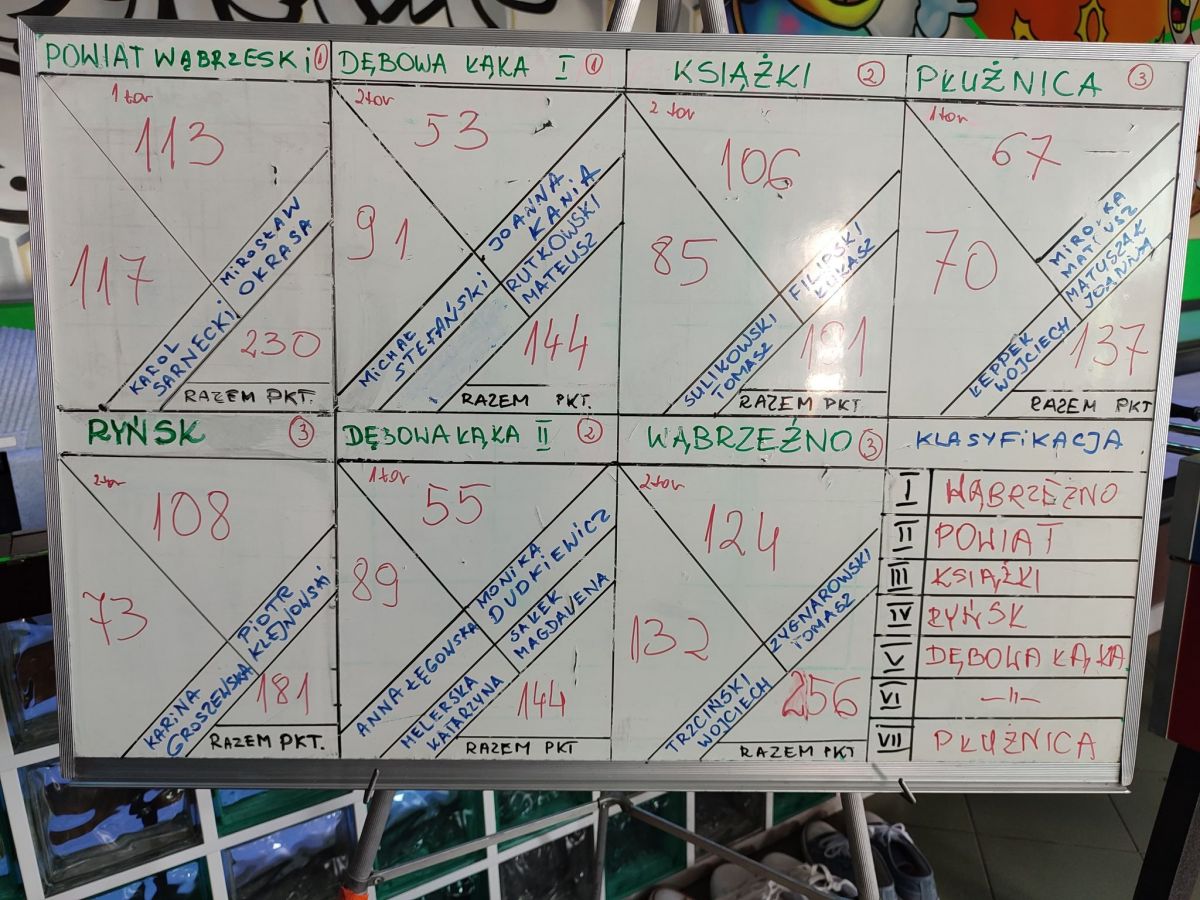 POWIAT WĄBRZESKI 1
1 tor
113
117
MIROSŁAW
OKRASA
KAROL
SARNECKI
230
RAZEM PKT.
DĘBOWA ŁĄKA I 1
2 tor
53
91
JOANNA
KANIA
RUTKOWSKI
MATEUSZ
MICHAŁ
STEFAŃSKI
144
RAZEM PKT.
KSIĄŻKI 2
2 tor
106
85
FILIPSKI
ŁUKASZ
SULIKOWSKI
TOMASZ
191
RAZEM PKT
PŁUŻNICA 3
1 tor
67
70
MATEUSZ
MATUSZAK
JOANNA
ŁEPPEK
WOJCIECH
137
RAZEM PKT
RYŃSK 3
2 tor
108
73
PIOTR
KLEJNOWSKI
KARINA
GROSZEWSKA
181
RAZEM PKT.
DĘBOWA ŁĄKA II 2
1 tor
55
89
MONIKA
DUDKIEWICZ
SAŁEK
MAGDALENA
ANNA ŁĘGOWSKA
MELERSKA
KATARZYNA
144
RAZEM PKT
WĄBRZEŹNO 3
2 tor
124
132
ZYGNAROWSKI
TOMASZ
TRZCIŃSKI
WOJCIECH
256
RAZEM PKT
KLASYFIKACJA
I WĄBRZEŹNO
II POWIAT
III KSIĄŻKI
IV RYŃSK
V DĘBOWA ŁĄKA
VI —11—
VII PŁUŻNICA